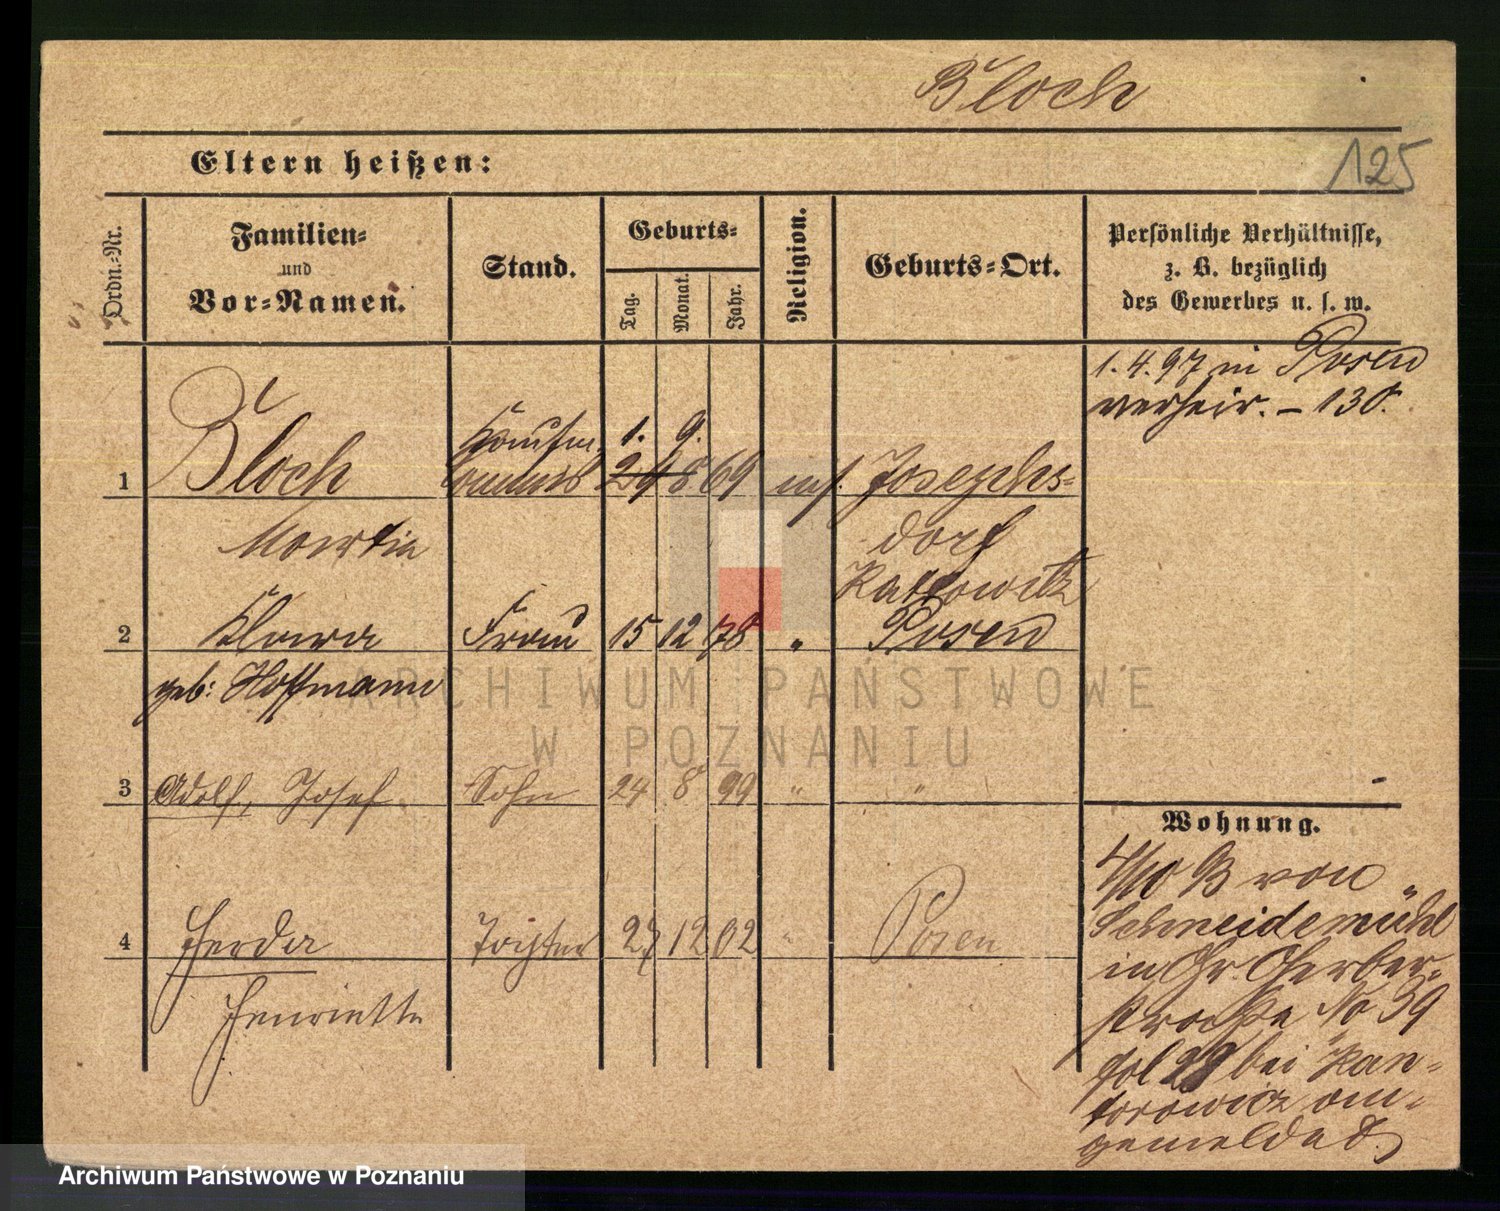 Bloch
125
Eltern heißen:
Ordn.-Nr.
Familien-
und
Vor-Namen.
Stand.
Geburts-
Tag.
Monat.
Jahr.
Religion.
Geburts-Ort.
Persönliche Verhältnisse,
z. B. bezüglich
des Gewerbes u. s. w.
1.4.97 in Posen
verheir. – 130.
Kaufm. 1. 9.
1 Bloch 24 8 69 mos. Josephs-
Martin dorf
Kattowitz
2 Klara Frau 15 12 78 " Posen
geb: Hoffmann
3 Adolf, Josef Sohn 24 8 99 " "
4 Herda Tochter 27 12 02 " Posen
Henriette
Wohnung.
4/10 93 von
Schneidemühl
in Gr. Gerber-
straße No 39
bei Kan-
torowicz an-
gemeldet.
ARCHIWUM PAŃSTWOWE
W POZNANIU
Archiwum Państwowe w Poznaniu